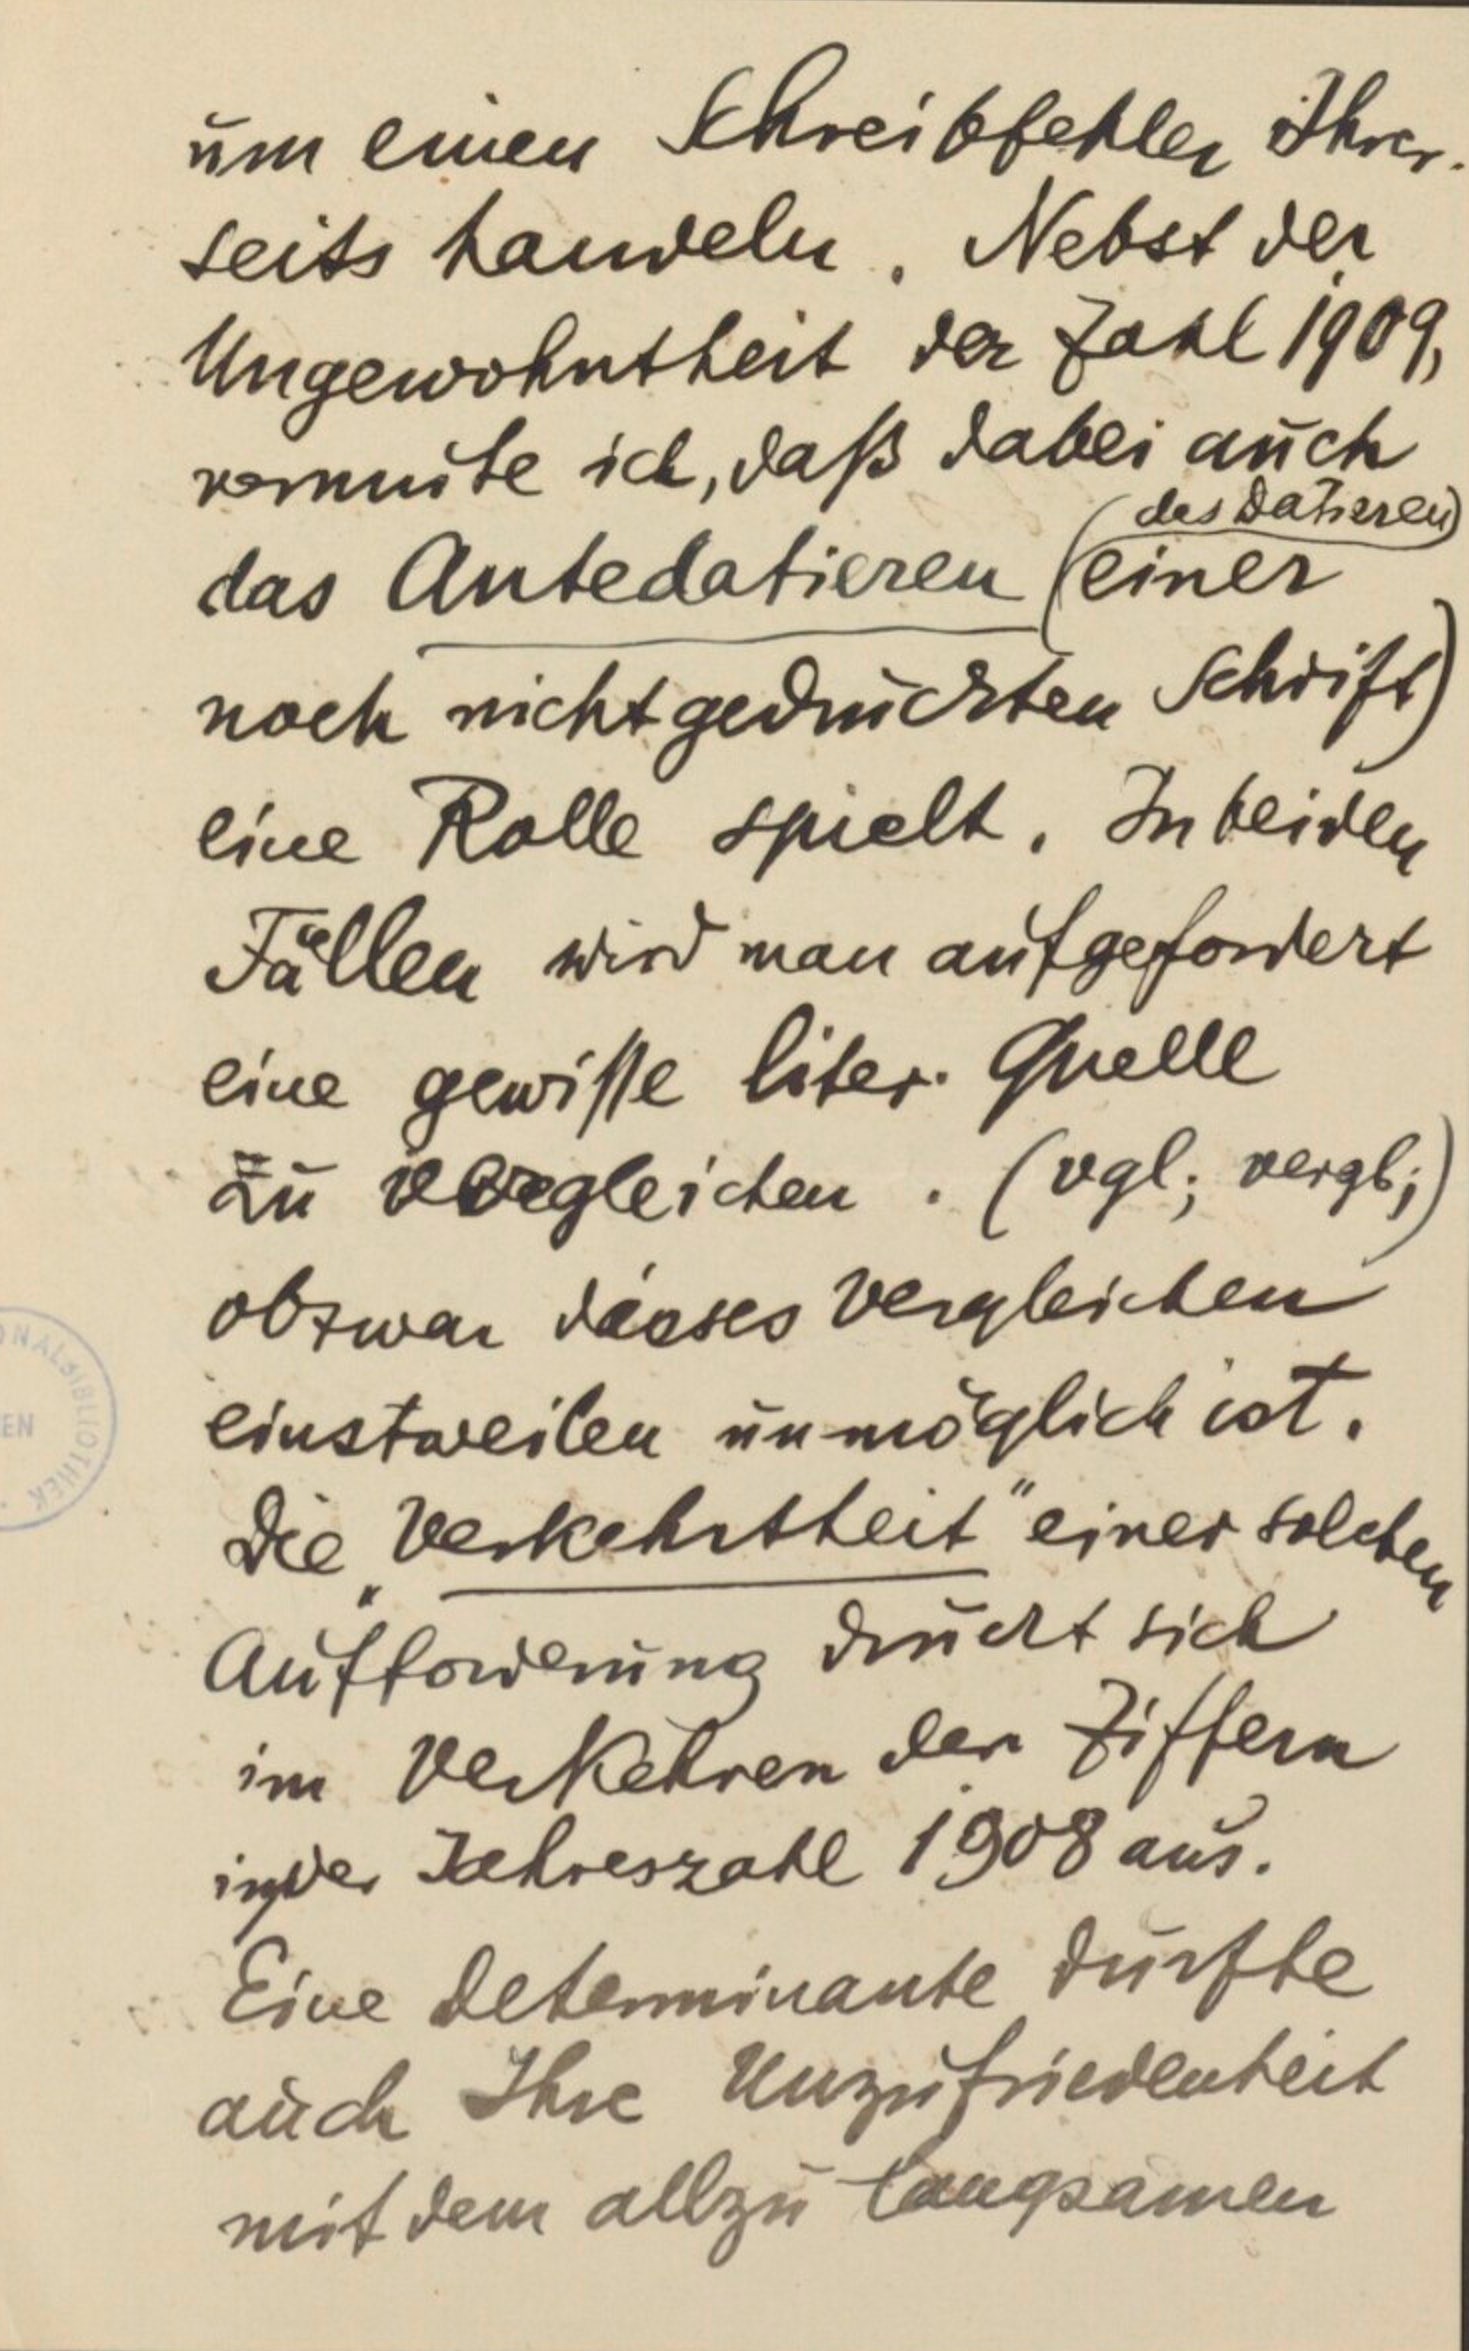 um einen Schreibfehler Ihrer-
seits handeln. Nebst der
Ungewohntheit der Zahl 1909,
vermute ich, daß dabei auch
(des Datieren)
das Antedatieren (einer
noch nicht gedruckten Schrift)
eine Rolle spielt. In beiden
Fällen wird man aufgefordert
eine gewisse liter. Quelle
zu vergleichen. (vgl; vergl;)
obzwar dieses Vergleichen
einstweilen unmöglich ist.
Die „Verkehrtheit" einer solchen
Aufforderung druckt sich
im Verkehren der Ziffern
in der Jahreszahl 1908 aus.
Eine Determinante dürfte
auch Ihre Unzufriedenheit
mit dem allzu langsamen